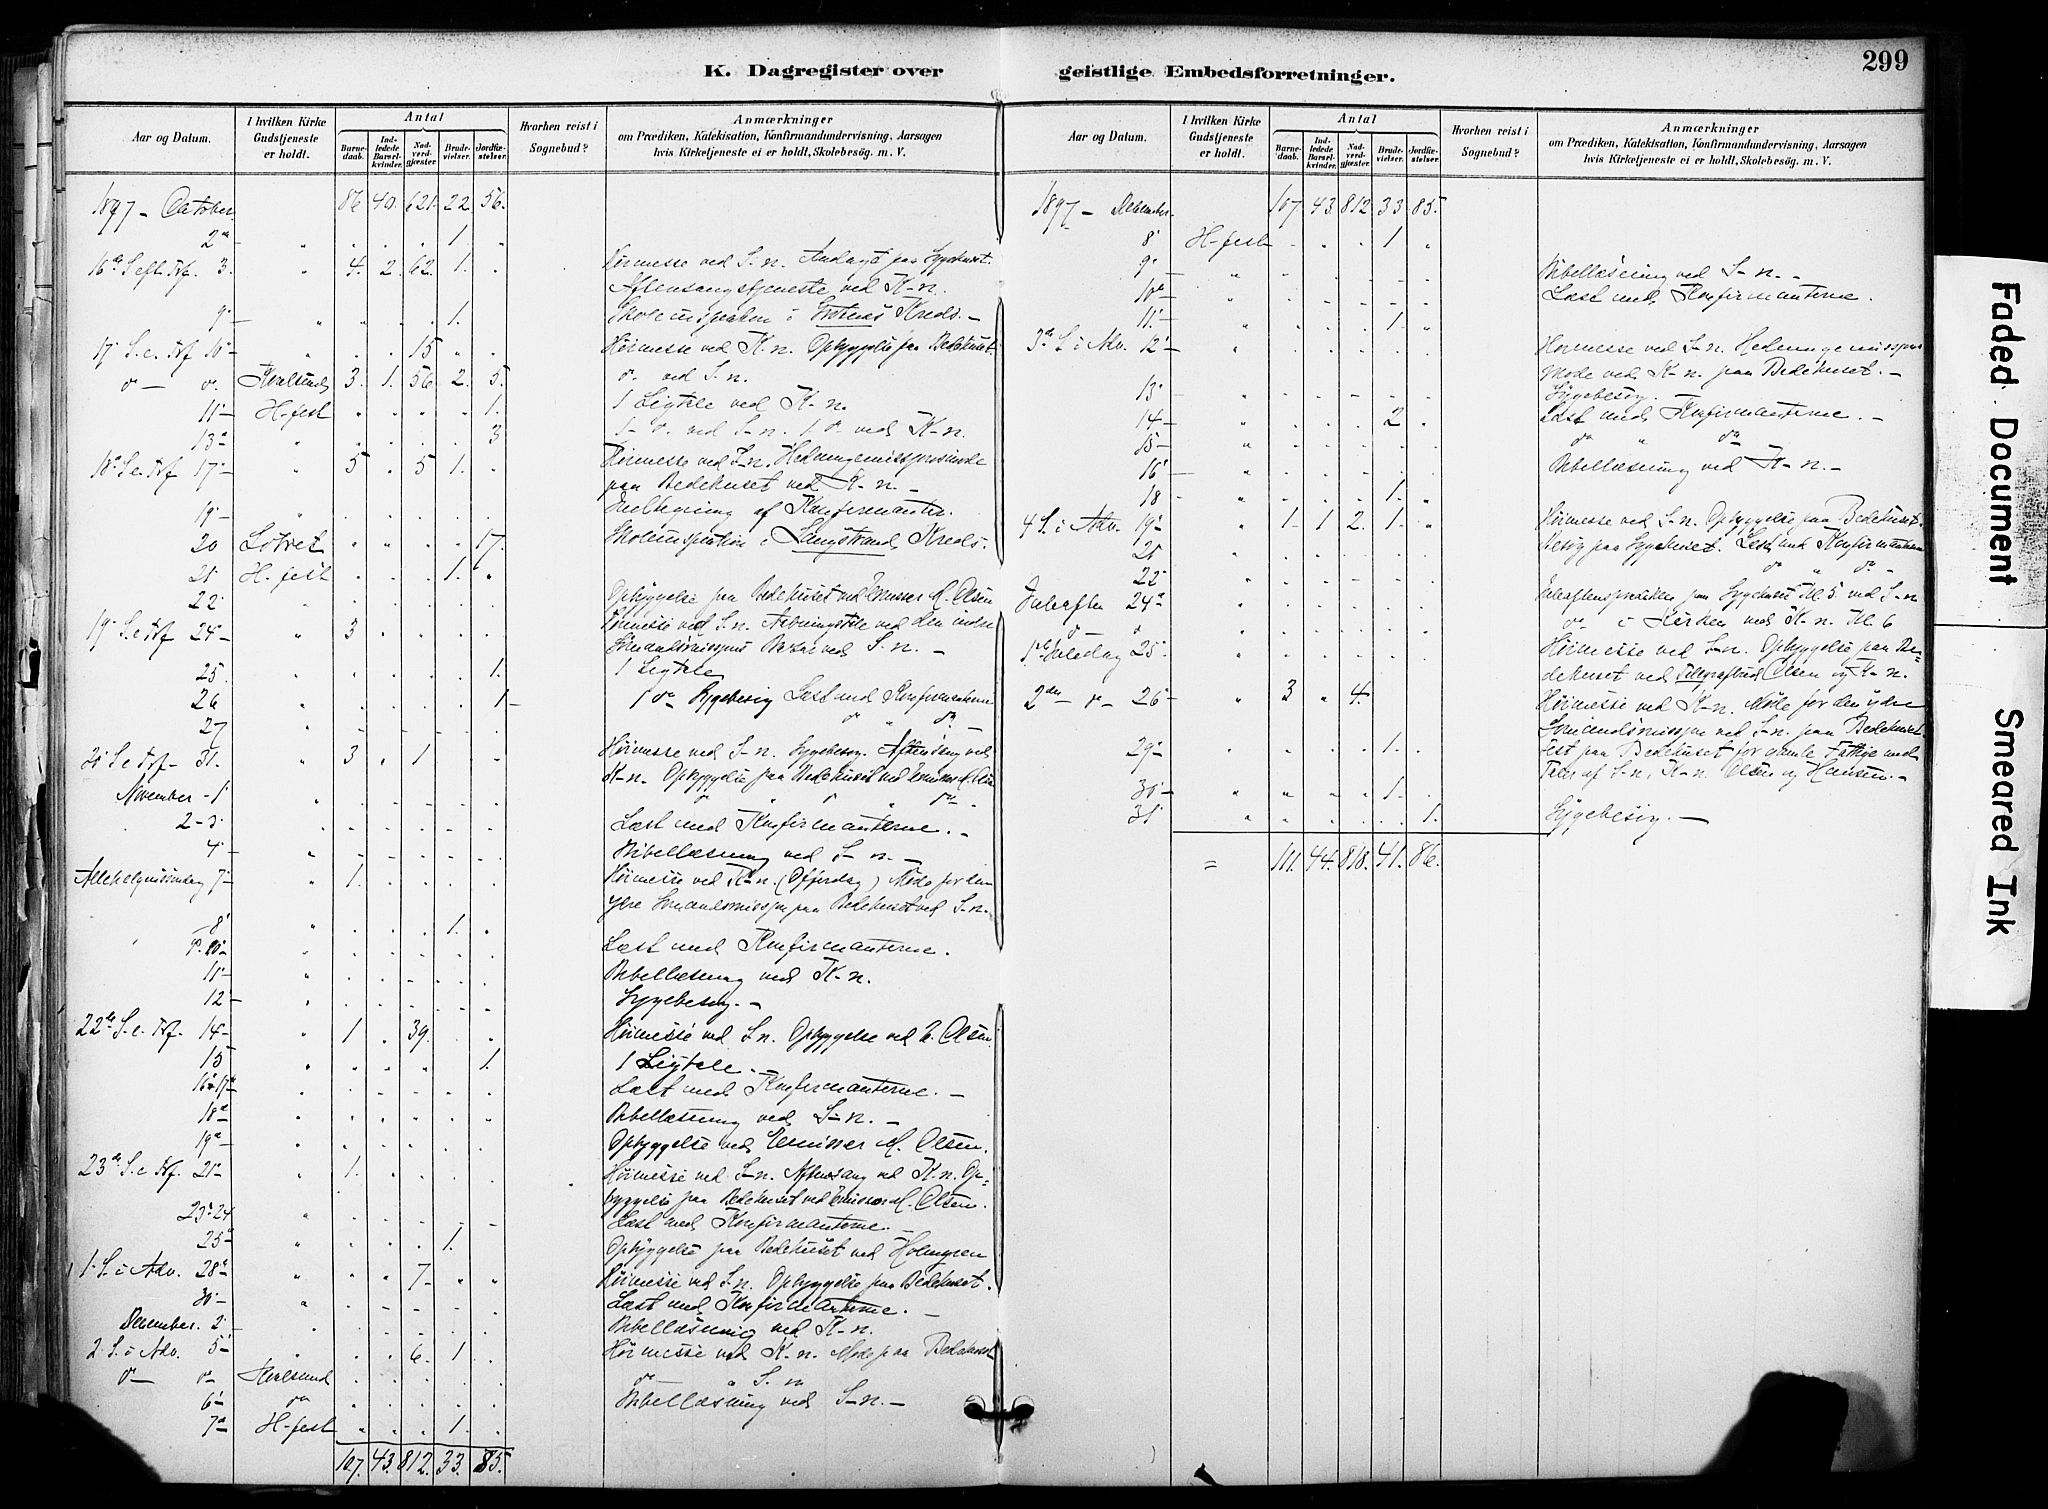 299
K. Dagregister over geistlige Embedsforretninger.
Aar og Datum.
I hvilken Kirke Gudstjeneste er holdt.
Antal
Barnedaab.
Indledede Barselkvinder.
Nadverdgjester.
Brudevielser.
Jordfæstelser.
Hvorhen reist i Sognebud?
Anmærkninger
om Prædiken, Katekisation, Konfirmandundervisning, Aarsagen
hvis Kirketjeneste ei er holdt, Skolebesøg. m. V.
1897 - October 86 40. 621. 22. 56.
2den " " . . 1. "
16de S eft. Trf. 3. " 4. 2. 62. 1. . Høimesse ved S. n. Andagt paa Sygehuset.
Aftensangstjeneste ved K-n.
9. " " . . 1. Skoleinspektion i Kreds. -
17 S. e. Trf 10 - " " . 15 " . Høimesse ved K. n. Opbyggelse paa Bedehuset.
do - do. Kvalsund 3. 1. 56. 2. 5. do. ved S. n.
11 - H-fest . . . . 1. 1 Ligtale ved K-n.
13de " . . . . 3 1 - do. ved S-n. 1 do. ved K-n.
18de S. e. Trf 17 - " 5 . 5 1. . Høimesse ved S-n. Hedningemissjonsmøde
paa Bedehuset ved K-n. -
19 - " Indtegning af Konfirmanter.
20 Lotret " . . . 17. Skoleinspektion i Langstrand Kreds.
21 H. fest . . . 1. "
22 " Opbyggelse paa Bedehuset ved Emissær M. Olsen
19 S. e Trf 24 - " 3 Høimesse ved S. n. Aabningstale ved den indre
Sømandsmissjons Bazar ved S. n. -
25. " . . . . 1. 1 Ligtale
26 " . . . . 1 - 1 do Sygebesøg Læst med Konfirmanterne
27 " do " do. -
20 S. e Trf - 31. " 3 . 1 . . Høimesse ved S-n. Sygebesøg. Aftensang ved
K-n. Opbyggelse paa Bedehuset ved Emissær M. Olsen
November - 1 " do " do " do - .
2 - 3. Læst med Konfirmanterne. -
4 - " Bibellæsning ved S-n. -
Allehelgenssøndag 7 - " 1. Høimesse ved K-n. (Offerdag) Møde for den
ydre Sømandsmissjon paa Bedehuset ved S-n.
8 " . . . 1. .
9. 10 - " Læst med Konfirmanterne.
11 - " Bibellæsning ved K-n.
12 - " Sygebesøg. -
22de S. e. Trf. 14 - " 1 . 39. . . Høimesse ved S. n. Opbyggelse ved M. Olsen.
15 " . . . . 1. 1 Ligtale. -
16 - 17de " Læst med Konfirmanterne. -
18de " Bibellæsning ved S-n. -
19de " Opbyggelse ved Emissær M. Olsen.
23de S. e Trf. 21 - " 1. . Høimesse ved S-n. Aftensang ved K. n. Op-
byggelse paa Bedehuset ved Emissær M. Olsen.
23 - 24 " Læst med Konfirmanterne. -
25de " . . . 1. Opbyggelse paa Bedehuset ved Holmgren
1. S. i Adv. 28de " " " 7 - " " Høimesse ved S-n. Opbyggelse paa Bedehuset.
30 - " Læst med Konfirmanterne. -
December. 2 - " Bibellæsning ved K-n.
2. S. i Adv. 5 - " . . 6. 1 . Høimesse ved K-n. Møde paa Bedehuset
do - do - Kvalsund do - " S. n
6 - do Bibellæsning ved S-n. -
7de H-fest . . . 1 .
107. 43. 812. 33. 85.
Aar og Datum.
I hvilken Kirke Gudstjeneste er holdt.
Antal
Barnedaab.
Indledede Barselkvinder.
Nadverdgjester.
Brudevielser.
Jordfæstelser.
Hvorhen reist i Sognebud?
Anmærkninger
om Prædiken, Katekisation, Konfirmandundervisning, Aarsagen
hvis Kirketjeneste ei er holdt, Skolebesøg. m. V.
1897 - December 107. 43. 812. 33. 85.
8 H-fest . . . 1 "
9 " Bibellæsning ved S-n. -
10de " Læst med Konfirmanterne.
11. " . . . 1. "
3de S. i Adv. 12 - " Høimesse ved S-n. Hedningemissjons
Møde ved K-n. paa Bedehuset. -
13 - " Sygebesøg.
14 - " . . . 2 . Læst med Konfirmanterne. -
15 - " do " do
16 - " Bibellæsning ved K-n. -
18 - " . . . 1. "
4 S. i Adv. 19de " 1 - 1 2. 1 - " Høimesse ved S-n. Opbyggelse paa Bedehuset.
21 " Besøg paa Sygehuset. Læst med Konfirmanterne
22 " do " do -
Juleaften 24de " Juleaftensprædiken paa Sygehuset Kl 5 ved S-n
do do " do - i Kirken ved K-n. Kl. 6
1ste Juledag 25. " Høimesse ved S-n. Opbyggelse paa Be-
dehuset ved Telegrafbud Olsen og K-n.
2den - do - 26 - " 3 " 4. Høimesse ved K-n. Møde for den ydre
Sømandsmissjon ved S-n. paa Bedehuset
29 - " . . . 1. - Fest paa Bedehuset for Gamle Fattige med
Taler af S-n, K-n. Olsen og Hansen. -
30 - " " . . 1 -
31 " . . . . 1. Sygebesøg. -
= 111. 44. 818. 41. 86.
Faded Document
Smeared Ink